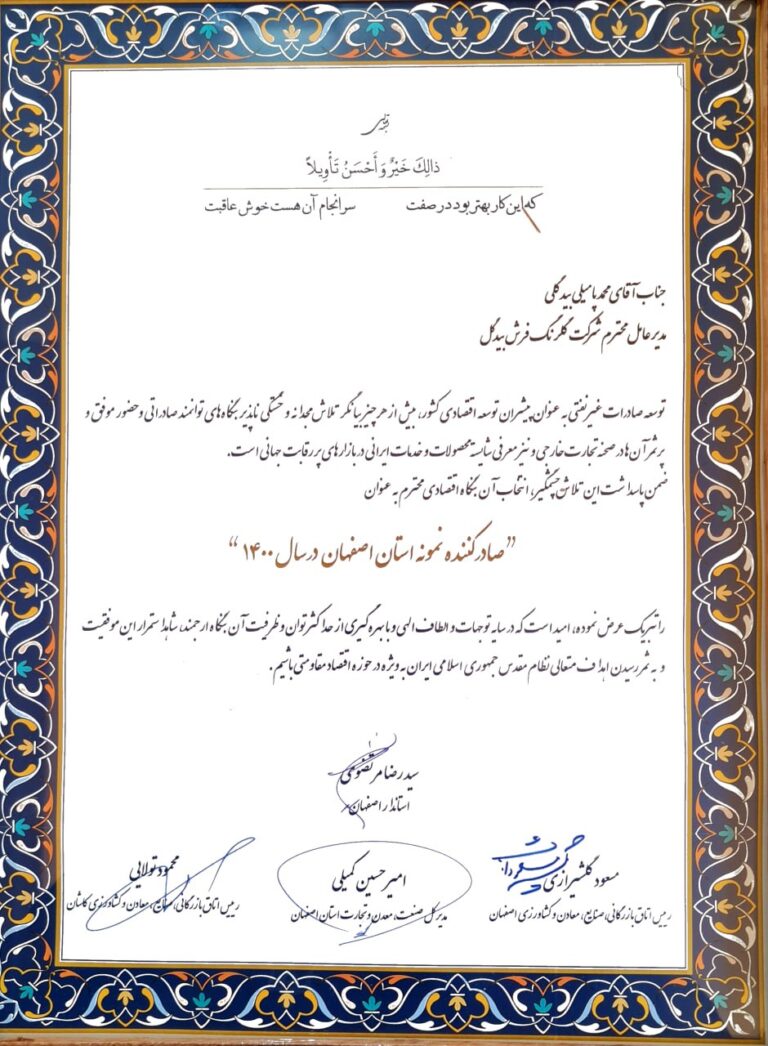 ذالِكَ خَيْرٌ وَ أَحْسَنُ تَأْوِيلاً
که این کار بهتر بود در صفت سرانجام آن هست خوش عاقبت
جناب آقای محمد پامیلی بیدگلی
مدیر عامل محترم شرکت گلرنگ فرش بیدگل
توسعه صادرات غیر نفتی به عنوان پیشران توسعه اقتصادی کشور، بیش از هر چیز بیانگر تلاش مجدانه و خستگی ناپذیر بنگاه های توانمند صادراتی و حضور موفق و
پر ثمر آن ها در صحنه تجارت خارجی و نیز معرفی شایسته محصولات و خدمات ایرانی در بازارهای پر رقابت جهانی است.
ضمن پاسداشت این تلاش چشمگیر، انتخاب آن بنگاه اقتصادی محترم به عنوان
”صادر کننده نمونه استان اصفهان در سال ۱۴۰۰“
را تبریک عرض نموده، امید است که در سایه توجهات و الطاف الهی و با بهره گیری از حداکثر توان و ظرفیت آن بنگاه ارجمند، شاهد استمرار این موفقیت
و به ثمر رسیدن اهداف متعالی نظام مقدس جمهوری اسلامی ایران به ویژه در حوزه اقتصاد مقاومتی باشیم.
سید رضا مرتضوی
استاندار اصفهان
مسعود گلشیرازی
رییس اتاق بازرگانی، صنایع، معادن و کشاورزی اصفهان
امیرحسین کمیلی
مدیر کل صنعت، معدن و تجارت استان اصفهان
محمود تولایی
رییس اتاق بازرگانی، صنایع، معادن و کشاورزی کاشان